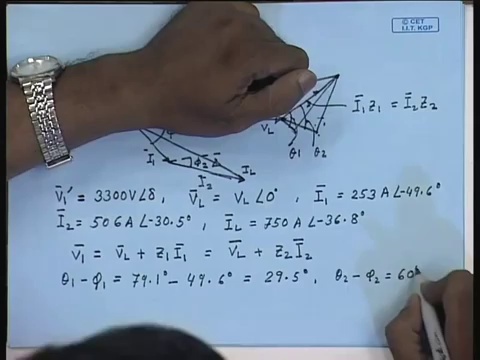 © CET
I.I.T. KGP
Ī₁Z₁ = Ī₂Z₂
V_L
θ₁ θ₂
Ī₁ φ₂
Ī₂ I_L
V̄₁' = 3300V∠δ, V̄_L = V_L∠0°, Ī₁ = 253 A∠-49.6°
Ī₂ = 506 A∠-30.5°, Ī_L = 750 A∠-36.8°
V̄₁ = V̄_L + Z₁Ī₁ = V̄_L + Z₂Ī₂
θ₁-φ₁ = 79.1° - 49.6° = 29.5°, θ₂-φ₂ = 60